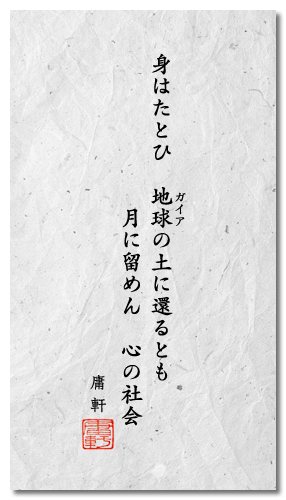 身はたとひ　地球の土に還るとも
ガイア
月に留めん　心の社会
庸軒